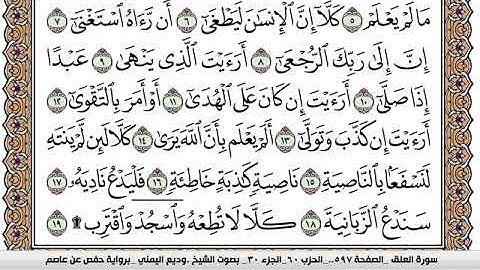 مَا لَمْ يَعْلَمْ ٥ كَلَّآ إِنَّ ٱلْإِنسَٰنَ لَيَطْغَىٰٓ ٦ أَن رَّءَاهُ ٱسْتَغْنَىٰٓ ٧
إِنَّ إِلَىٰ رَبِّكَ ٱلرُّجْعَىٰٓ ٨ أَرَءَيْتَ ٱلَّذِى يَنْهَىٰ ٩ عَبْدًا
إِذَا صَلَّىٰٓ ١٠ أَرَءَيْتَ إِن كَانَ عَلَى ٱلْهُدَىٰٓ ١١ أَوْ أَمَرَ بِٱلتَّقْوَىٰٓ ١٢
أَرَءَيْتَ إِن كَذَّبَ وَتَوَلَّىٰٓ ١٣ أَلَمْ يَعْلَم بِأَنَّ ٱللَّهَ يَرَىٰ ١٤ كَلَّا لَئِن لَّمْ يَنتَهِ
لَنَسْفَعًۢا بِٱلنَّاصِيَةِ ١٥ نَاصِيَةٍ كَٰذِبَةٍ خَاطِئَةٍ ١٦ فَلْيَدْعُ نَادِيَهُۥ ١٧
سَنَدْعُ ٱلزَّبَانِيَةَ ١٨ كَلَّا لَا تُطِعْهُ وَٱسْجُدْ وَٱقْتَرِب ۩ ١٩
سورة العلق _الصفحة ٥٩٧_.. الحزب ٦٠_ الجزء ٣٠_ بصوت الشيخ .وديع اليمني _برواية حفص عن عاصم